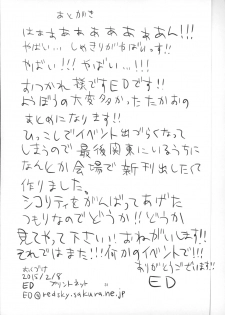 あとがき
はぁぁぁぁぁぁぁぁあん!!!
やばい!!! やばい…!!!
おつかれ様ですEDです!!!
の大変多かったたかおの
まとめになります!!
ひっこしでイベント出づらくなって
しまうので最後関東にいるうちに
なんとか会場で新刊出したくて
作りました。
シコリティをがんばってあげた
つもりなのでどうか!!どうか
見てやって下さい!!おねがいします!
それではまた!!!何かのイベントで!!!
ありがとうございます!!
ED
おくづけ
2015/2/8
ED プリントネット
ED@redsky.sakura.ne.jp